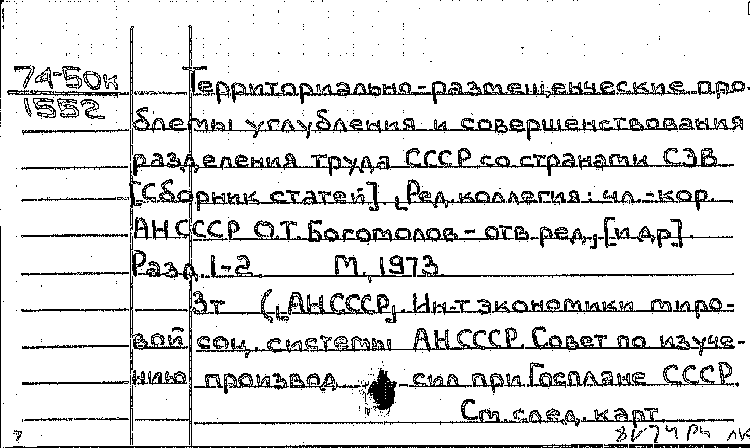 74-50к
1552
Территориально-размещенческие про-
блемы углубления и совершенствования
разделения труда СССР со странами СЭВ
[Сборник статей] ⌊Ред. коллегия: чл.-кор.
АН СССР О.Т. Богомолов - отв. ред.⌋ [и др].
Разд. 1-2 М., 1973
3т (⌊АН СССР⌋. Ин-т экономики миро-
вой соц. системы АН СССР. Совет по изуче-
нию производ сил при Госплане СССР.
См. след. карт.